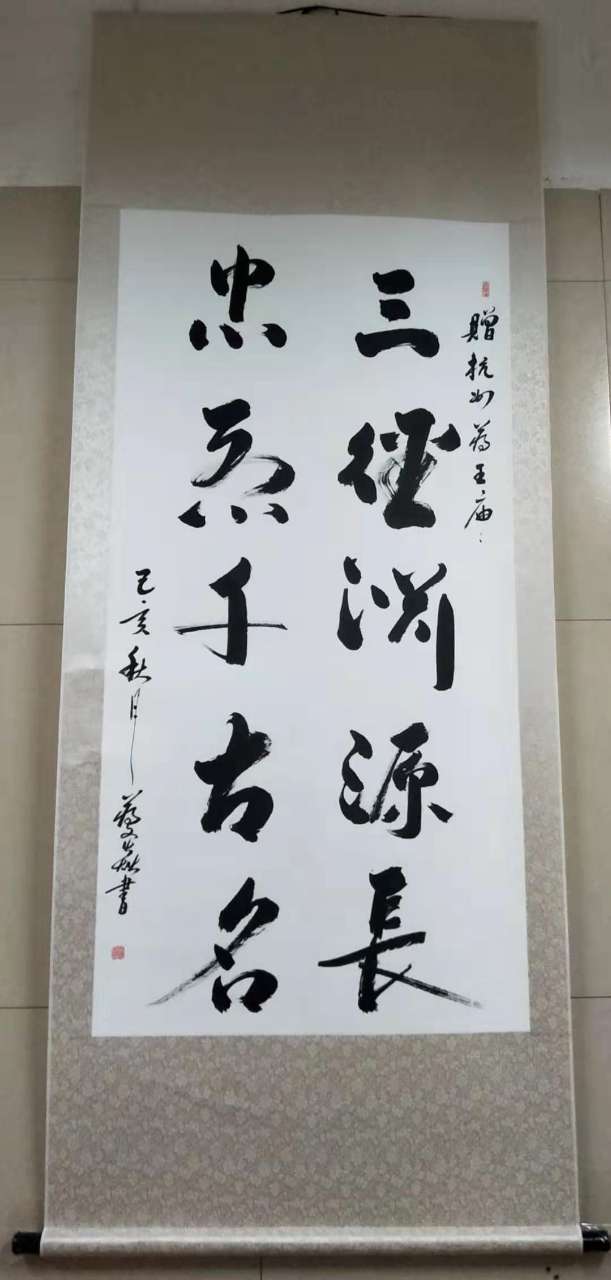 贈杭州蒋王庙
三徑渊源長
忠烈千古名
己亥秋月 書